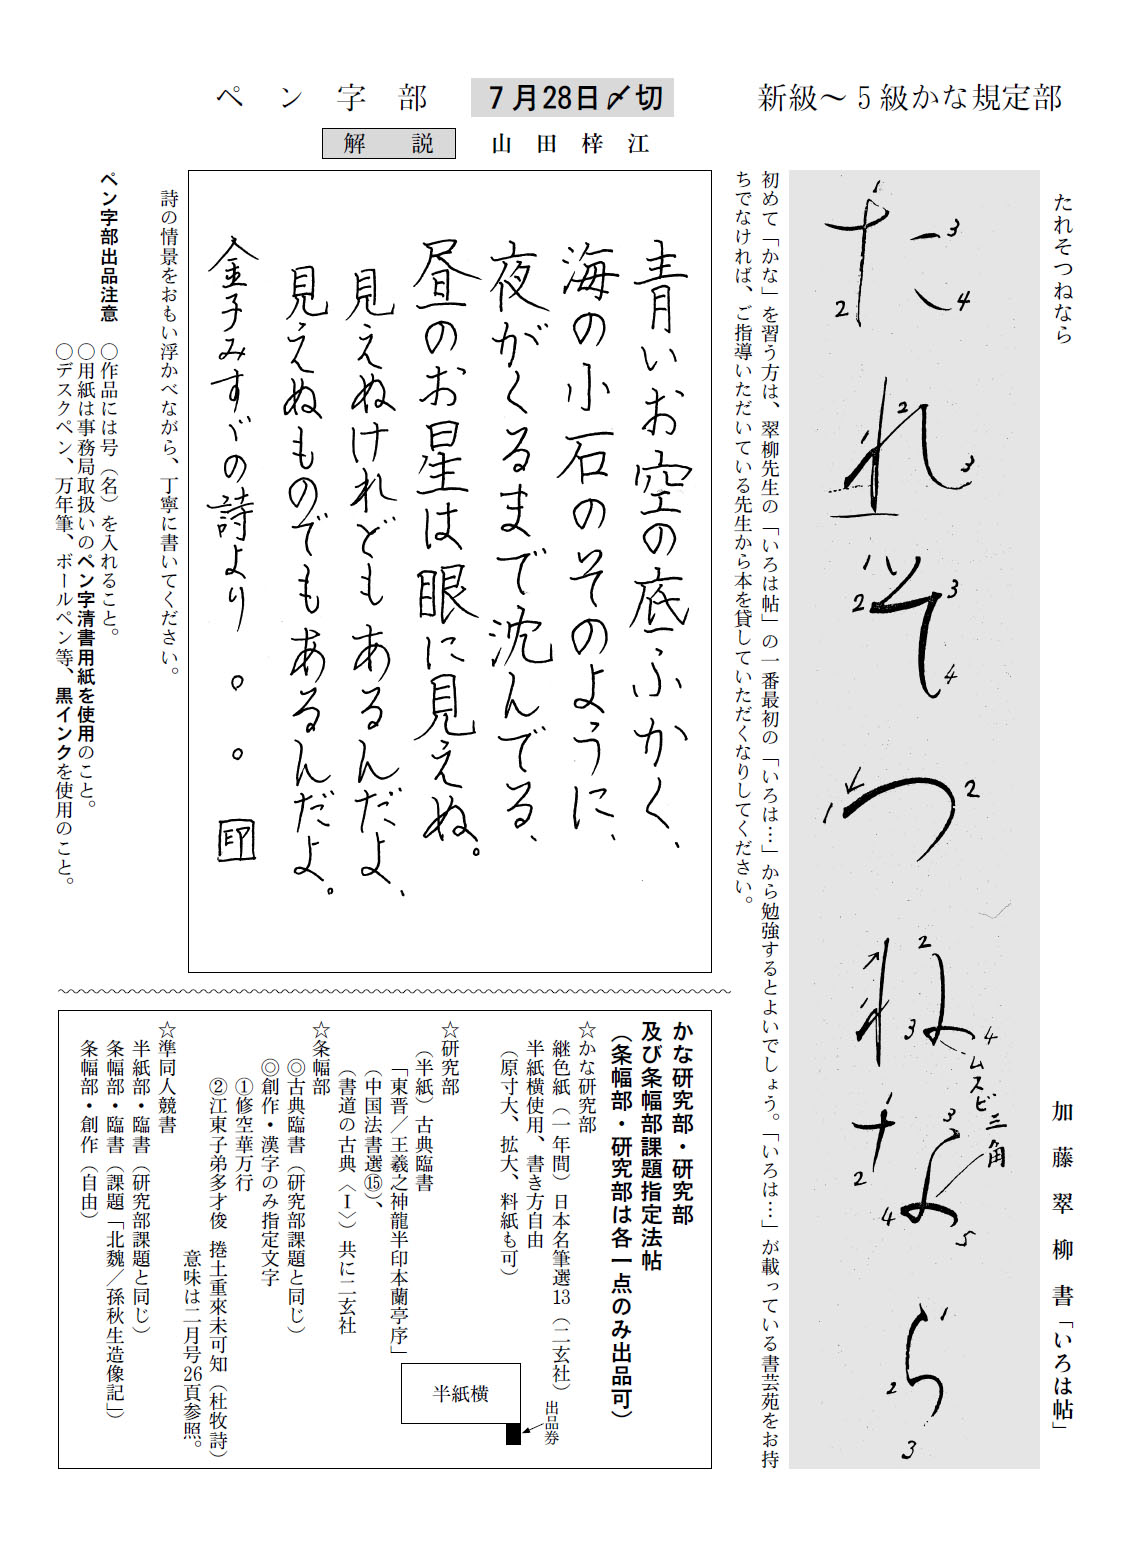 新級～5級かな規定部
たれそつねなら
加藤翠柳書「いろは帖」
たれそつねなら
1
2
3
4
2
3
1
2
3
4
1
2
2
3
4
ムスビ三角
1
2
3
4
5
1
2
3
初めて「かな」を習う方は、翠柳先生の「いろは帖」の一番最初の「いろは…」から勉強するとよいでしょう。「いろは…」が載っている書芸苑をお持
ちでなければ、ご指導いただいている先生から本を貸していただくなりしてください。
ペン字部
7月28日〆切
解説
山田梓江
青いお空の底ふかく、
海の小石のそのように、
夜がくるまで沈んでる、
昼のお星は眼に見えぬ。
見えぬけれどもあるんだよ、
見えぬものでもあるんだよ。
金子みすゞの詩より ○ ○ 印
詩の情景をおもい浮かべながら、丁寧に書いてください。
ペン字部出品注意
○作品には号（名）を入れること。
○用紙は事務局取扱いのペン字清書用紙を使用のこと。
○デスクペン、万年筆、ボールペン等、黒インクを使用のこと。
かな研究部・研究部
及び条幅部課題指定法帖
（条幅部・研究部は各一点のみ出品可）
☆かな研究部
継色紙（一年間）日本名筆選13（二玄社）
半紙横使用、書き方自由
（原寸大、拡大、料紙も可）
半紙横
出品券
☆研究部
（半紙）古典臨書
「東晋／王羲之神龍半印本蘭亭序」
（中国法書選⑮）、
（書道の古典〈Ⅰ〉）共に二玄社
☆条幅部
◎古典臨書（研究部課題と同じ）
◎創作・漢字のみ指定文字
①修空華万行
②江東子弟多才俊 捲土重來未可知（杜牧詩）
意味は二月号26頁参照。
☆準同人競書
半紙部・臨書（研究部課題と同じ）
条幅部・臨書（課題「北魏／孫秋生造像記」）
条幅部・創作（自由）